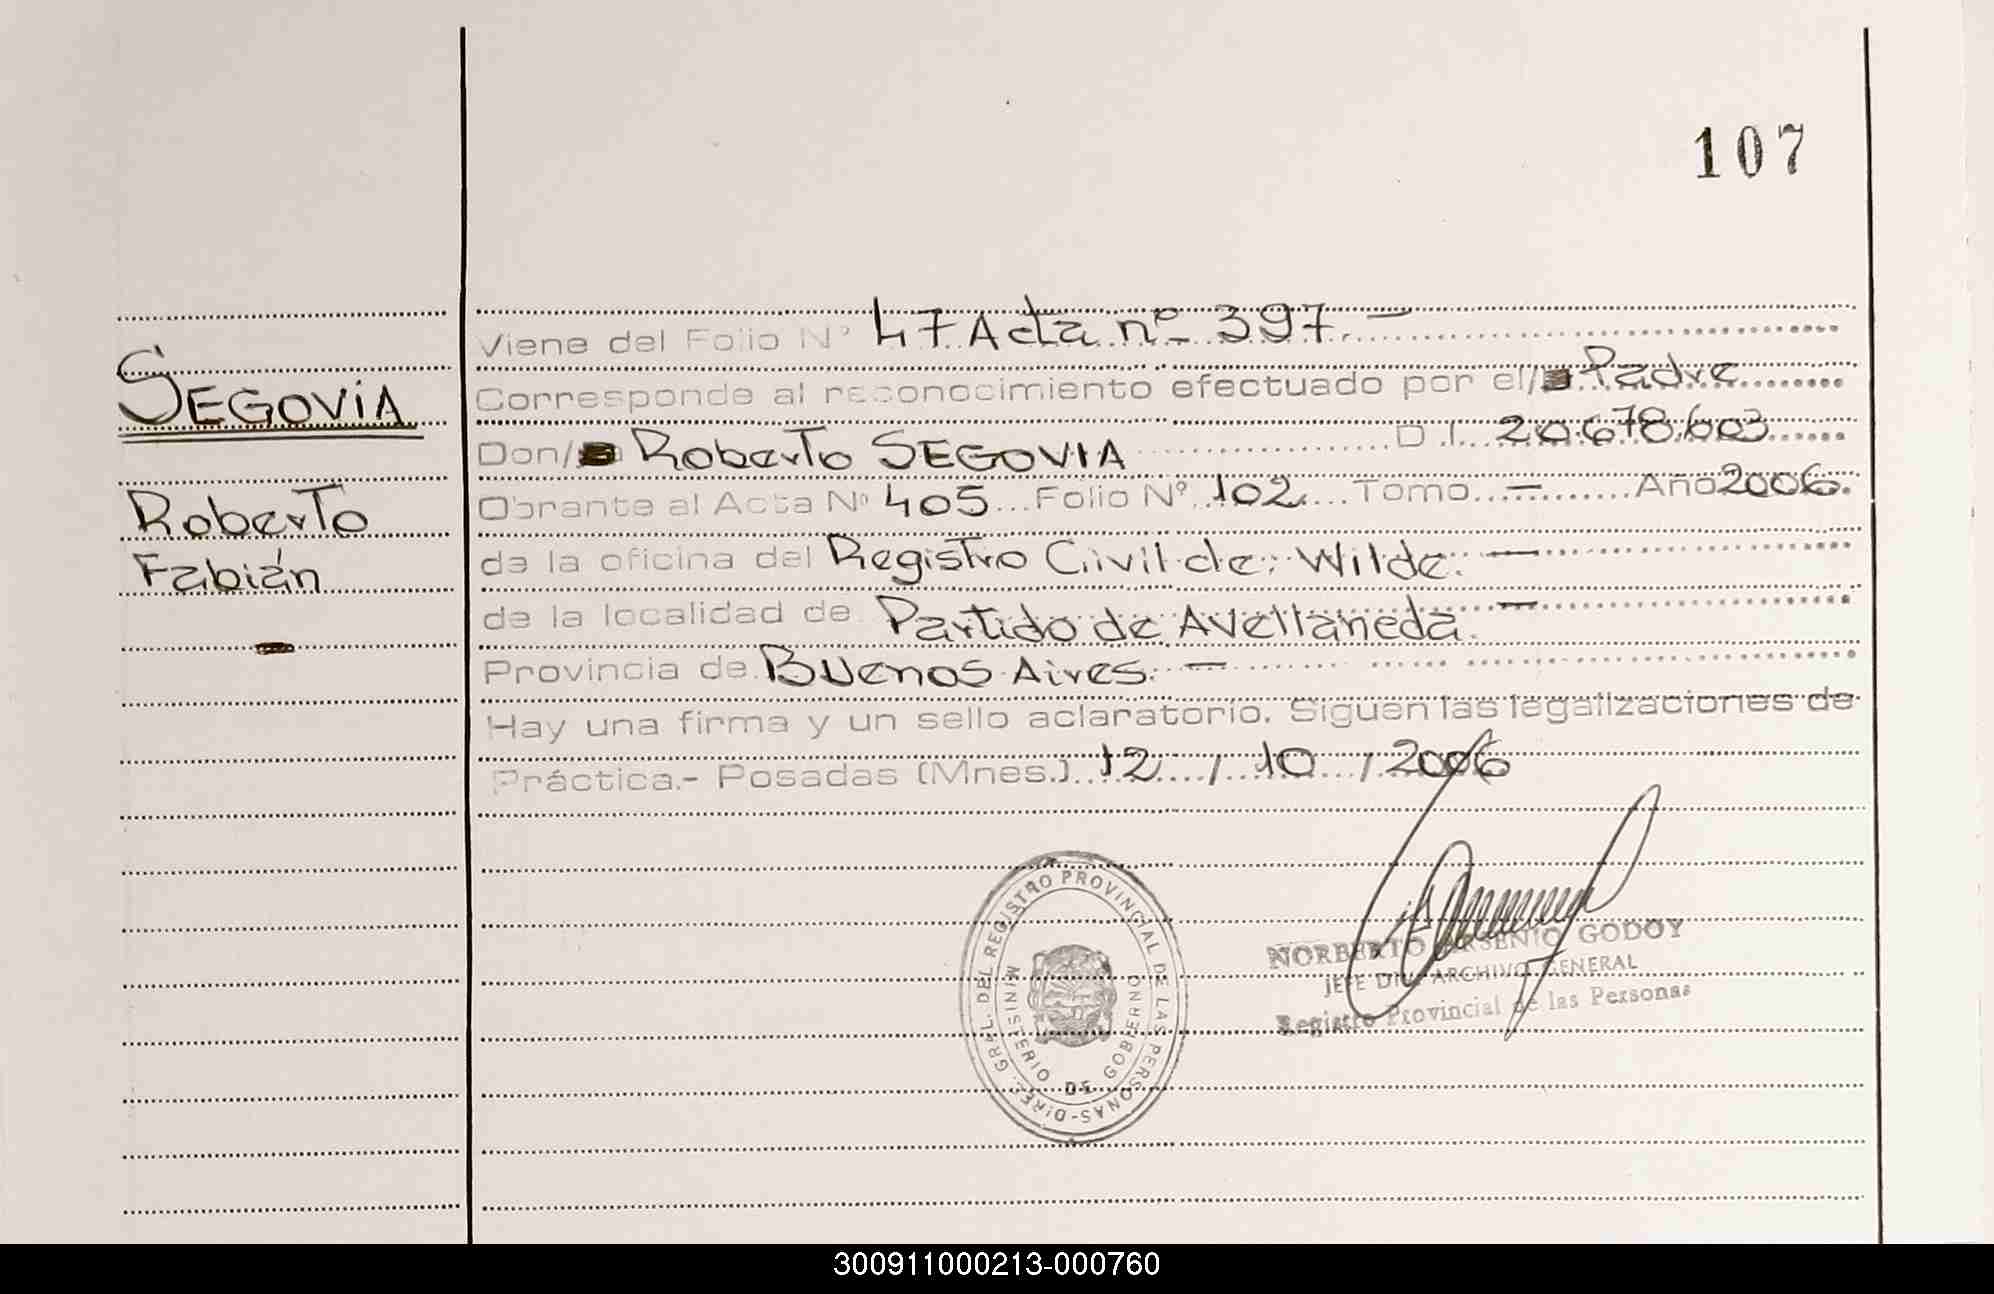 107
Viene del Folio Nº 47 Acta nº 397.-
SEGOVIA
Corresponde al reconocimiento efectuado por el/ Padre
Don/ Roberto SEGOVIA D.I. 20.678.603
Roberto
Obrante al Acta Nº 405 Folio Nº 102 Tomo - Año 2006.
Fabián
de la oficina del Registro Civil de: Wilde. -
de la localidad de Partido de Avellaneda. -
Provincia de Buenos Aires. -
Hay una firma y un sello aclaratorio. Siguen las legalizaciones de
Práctica.- Posadas (Mnes.) 12 / 10 / 2006
DIREC. GRAL. DEL REGISTRO PROVINCIAL DE LAS PERSONAS-
MINISTERIO DE GOBIERNO
NORBERTO ARSENIO GODOY
JEFE DIV. ARCHIVO GENERAL
Registro Provincial de las Personas
300911000213-000760